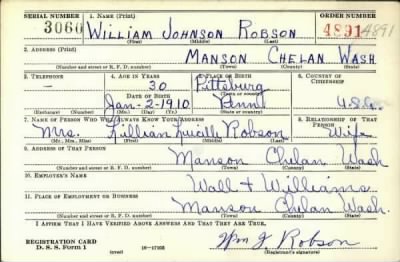 SERIAL NUMBER 1. NAME (Print) ORDER NUMBER
3060 WILLIAM JOHNSON ROBSON 4891 4891
(First) (Middle) (Last)
2. ADDRESS (Print)
MANSON CHELAN WASH
(Number and street or R. F. D. number) (Town) (County) (State)
3. TELEPHONE 4. AGE IN YEARS 5. PLACE OF BIRTH 6. COUNTRY OF CITIZENSHIP
- 30 Pittsburg
DATE OF BIRTH (Town or county)
Jan-2-1910 Penn U.S.
(Exchange) (Number) (Mo.) (Day) (Yr.) (State or country)
7. NAME OF PERSON WHO WILL ALWAYS KNOW YOUR ADDRESS 8. RELATIONSHIP OF THAT PERSON
Mrs. Lillian Lucille Robson Wife
(Mr., Mrs., Miss) (First) (Middle) (Last)
9. ADDRESS OF THAT PERSON
Manson Chelan Wash
(Number and street or R. F. D. number) (Town) (County) (State)
10. EMPLOYER'S NAME
Wall + Williams
11. PLACE OF EMPLOYMENT OR BUSINESS
Manson Chelan Wash.
(Number and street or R. F. D. number) (Town) (County) (State)
I AFFIRM THAT I HAVE VERIFIED ABOVE ANSWERS AND THAT THEY ARE TRUE.
REGISTRATION CARD
D. S. S. Form 1 (over) 16-17105 Wm J Robson
(Registrant's signature)